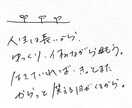 人生は長いから、
ゆっくり、イイながら進もう。
生きていれば、きっとまた
からっと笑える日がくるから。